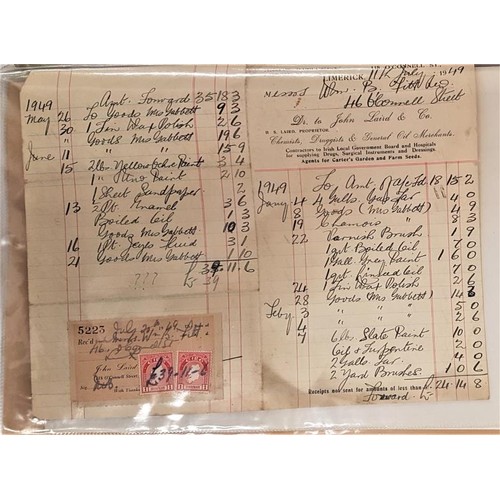 1949 Amt. Forward 35 18 3
May 26 To Goods Mrs Gubbott 9 3
" 30 " 1 Tin Wax Polish 2 6
Goods Mrs Gubbott 19 6
June 11 " " 15 9
" 15 2 lbs Yellow Paint 3 4
" 1 " Paint 2 10
1 Sheet Sandpaper 2
13 Enamel 3 6
Boiled Oil 1 3
Goods Mrs Gubbott 10 3
16 1 Pt. Jeyes Fluid 3 1
21 Goods Mrs Gubbott 1 10
£39 . 11 . 6
???
£39
5223
July 1949
Rec'd from
John Laird
O'Connell Street
£39-11-6
O'CONNELL ST.,
LIMERICK, 11th July 1949
Messrs Wm. B.
46 O'Connell Street
Dr. to John Laird & Co.
R. S. LAIRD, PROPRIETOR.
Chemists, Druggists & General Oil Merchants.
Contractors to Irish Local Government Board and Hospitals
for supplying Drugs, Surgical Instruments and Dressings.
Agents for Carter's Garden and Farm Seeds.
1949 To Amt. Fed 18 15 2
Jany 4 4 Galls. Gas Tar 4 0
8 Goods (Mrs Gubbott) 8 0
19 Chamois 8 3
22 Varnish Brush 1 9
1 qrt Boiled Oil 7 0
1 Gall. Grey Paint 1 6 0
1 qrt Linseed Oil 7 0
24 Tin Wax Polish 2 6
28 Goods (Mrs Gubbott) 14 3
Feby 3 " " 5 0
4 " " 2 6
4 6 lbs Slate Paint 10 0
Oil & Turpentine 5 0
2 Galls. Tar 4 0
2 Yard Brushes 10 6
Receipts not sent for amounts of less than £24 . 14 8
Forward